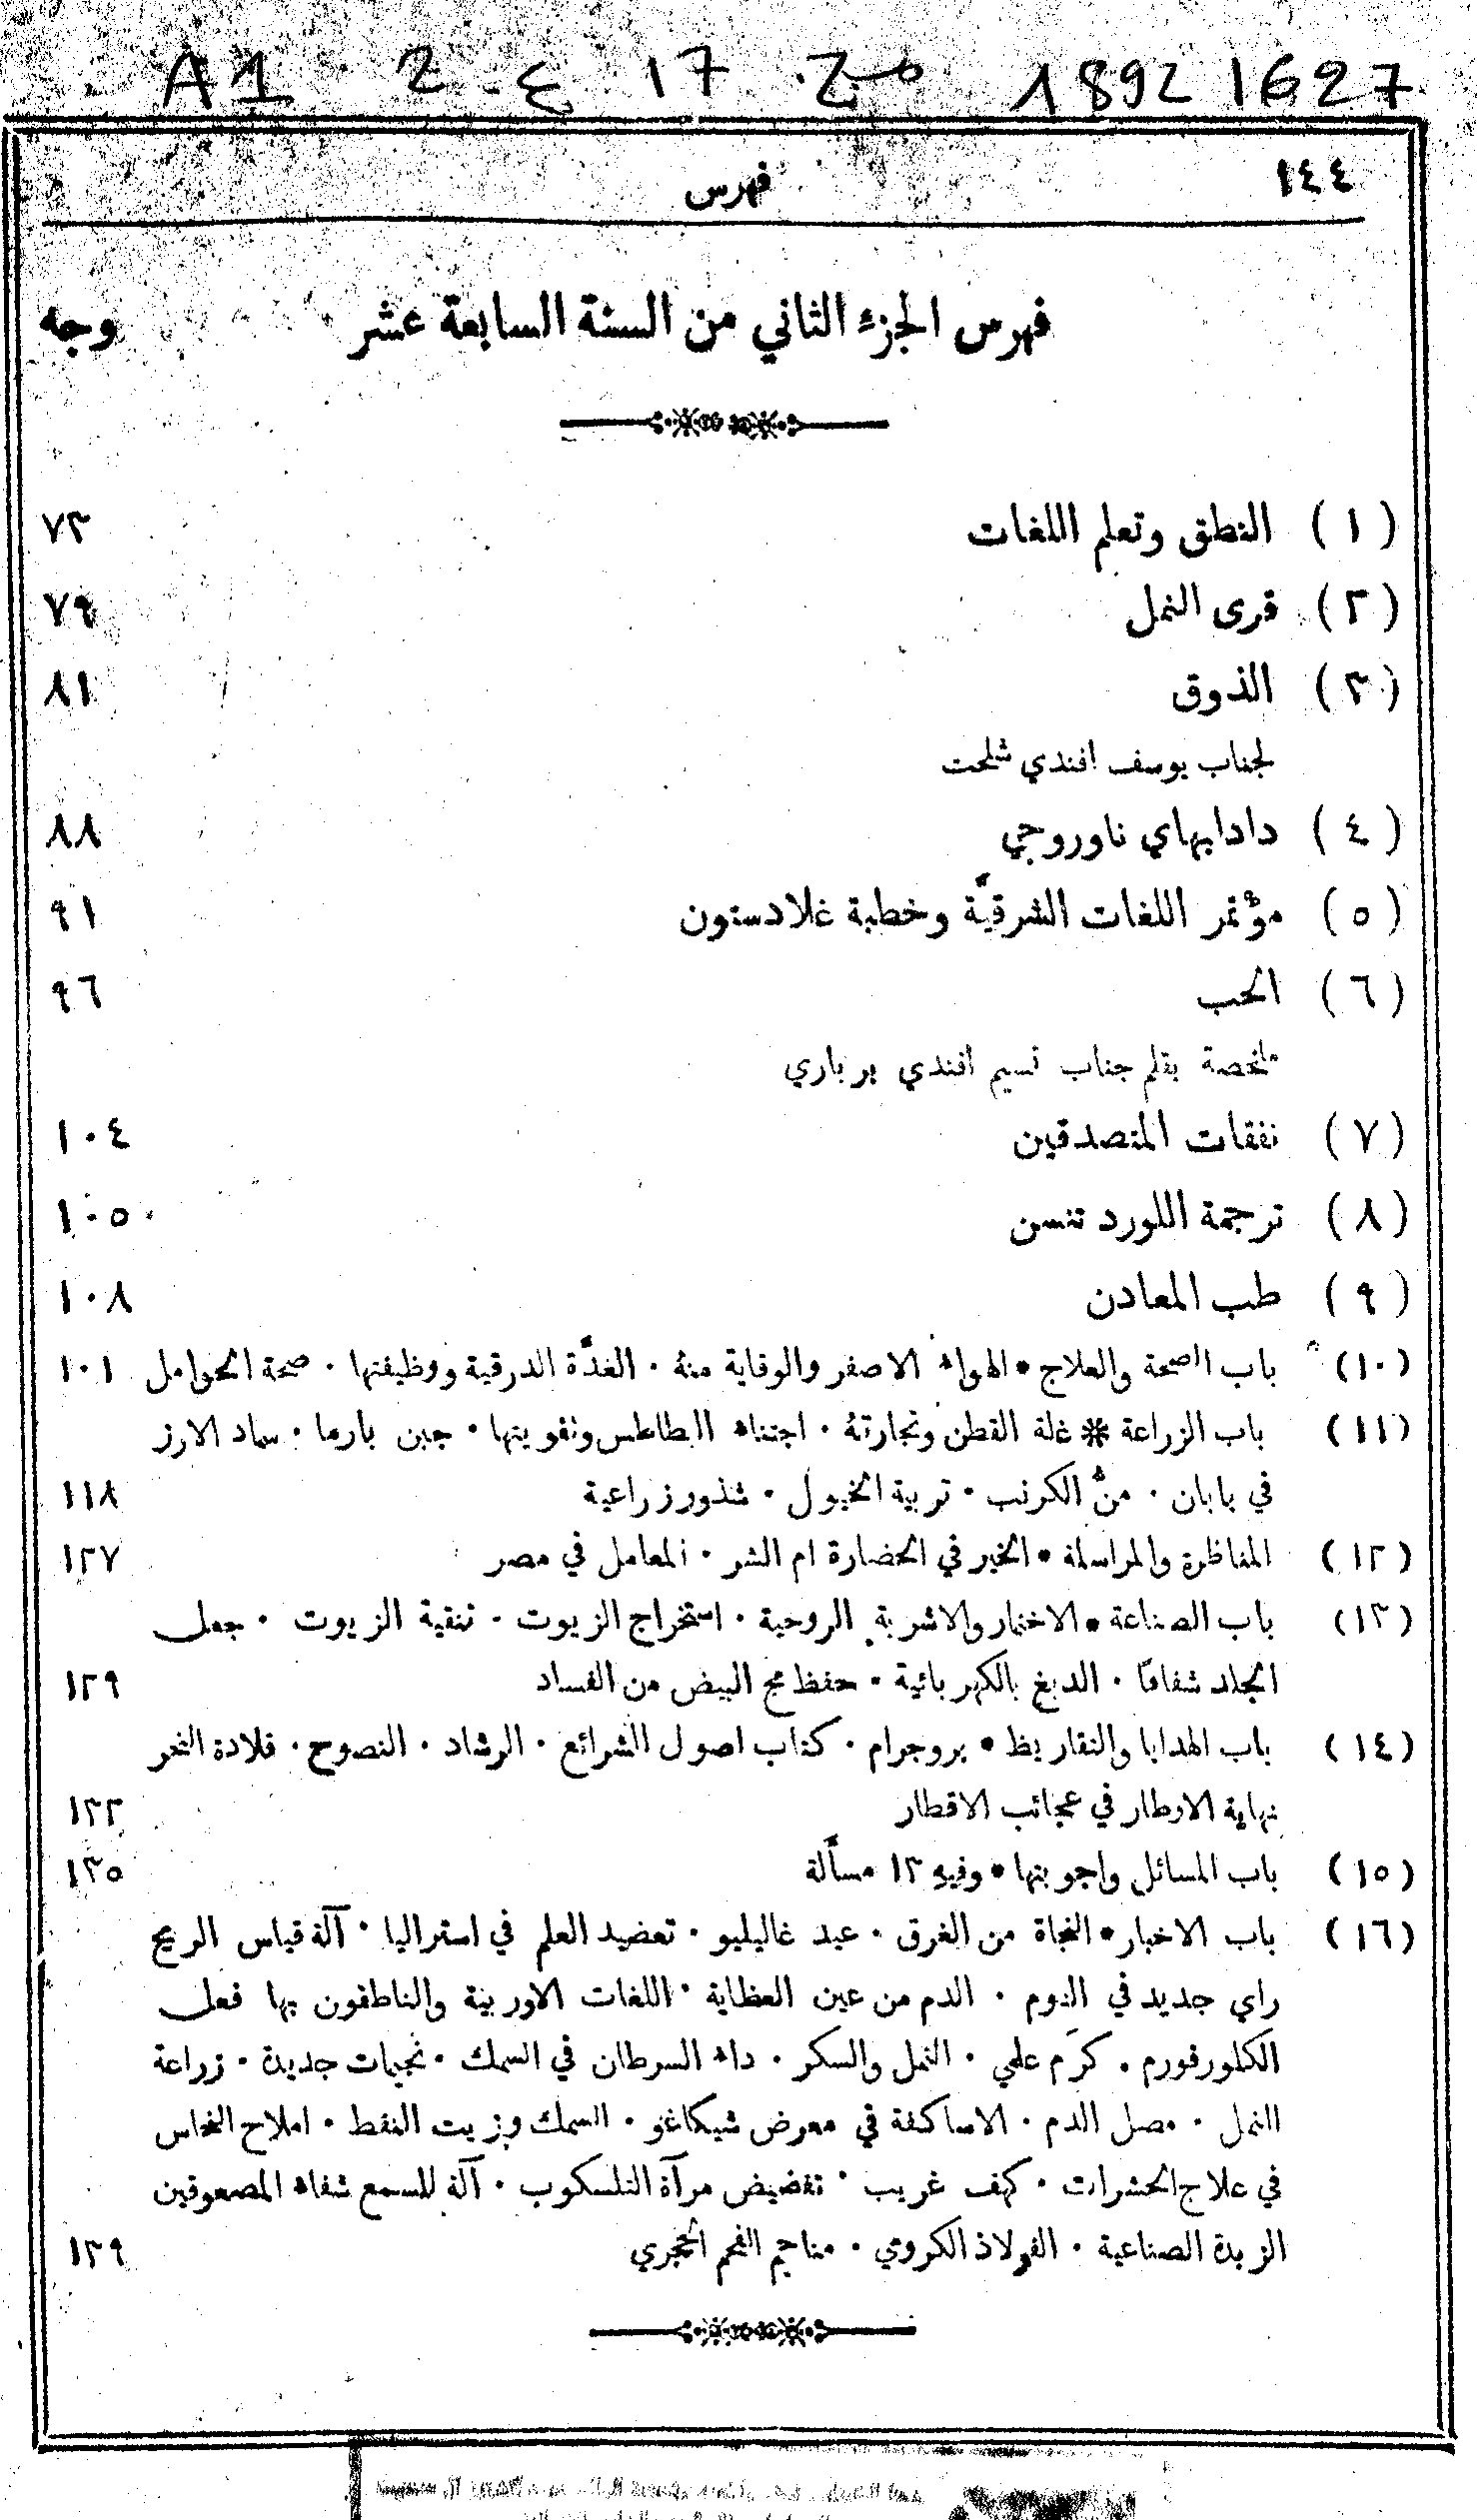 A1 2 - ع 17 مج. 1892 1627
١٤٤ فهرس
فهرس الجزء الثاني من السنة السابعة عشر وجه
(١) النطق وتعلم اللغات ٧٣
(٢) قرى النمل ٧٩
(٣) الذوق ٨١
لجناب يوسف افندي شلحت
(٤) دادابهاي ناوروجي ٨٨
(٥) مؤتمر اللغات الشرقيَّة وخطبة غلادستون ٩١
(٦) الحب ٩٦
ملخصة بقلم جناب نسيم افندي برباري
(٧) نفقات المتصدقين ١٠٤
(٨) ترجمة اللورد تنسن ١٠٥
(٩) طب المعادن ١٠٨
(١٠) باب الصحة والعلاج * الهواء الاصفر والوقاية منهُ . الغدَّة الدرقية ووظيفتها . صحة الحوامل ١٠١
(١١) باب الزراعة * غلة القطن وتجارتهُ . اجتناء البطاطس وتقويتها . جبن بارما . سماد الارز
في يابان . منُّ الكرنب . تربية الخيول . شذور زراعية ١١٨
(١٢) المناظرة والمراسلة * الخير في الحضارة ام الشر . المعامل في مصر ١٢٧
(١٣) باب الصناعة * الاختمار والاشربة الروحية . استخراج الزيوت . تنقية الزيوت . جعل
الجلد شفافًا . الدبغ بالكهربائية . حفظ مح البيض من الفساد ١٢٩
(١٤) باب الهدايا والتقاريظ * بروجرام . كتاب اصول الشرائع . الرشاد . النصوح . قلادة النحر
نهاية الاوطار في عجائب الاقطار ١٣٣
(١٥) باب المسائل واجوبتها * وفيهِ ١٣ مسأَلة ١٣٥
(١٦) باب الاخبار * النجاة من الغرق . عيد غاليليو . تعضيد العلم في استراليا . آلة قياس الريح
راي جديد في النوم . الدم من عين العظاية . اللغات الاوربية والناطقون بها فعل
الكلورفورم . كرَم علمي . النمل والسكر . داء السرطان في السمك . نجيمات جديدة . زراعة
النمل . مصل الدم . الاساكفة في معرض شيكاغو . السمك وزيت النفط . املاح النحاس
في علاج الحشرات . كهف غريب . تفضيض مرآة التلسكوب . آلة للسمع شفاء المصعوقين
الزبدة الصناعية . الفولاذ الكرومي . مناجم الفحم الحجري ١٣٩